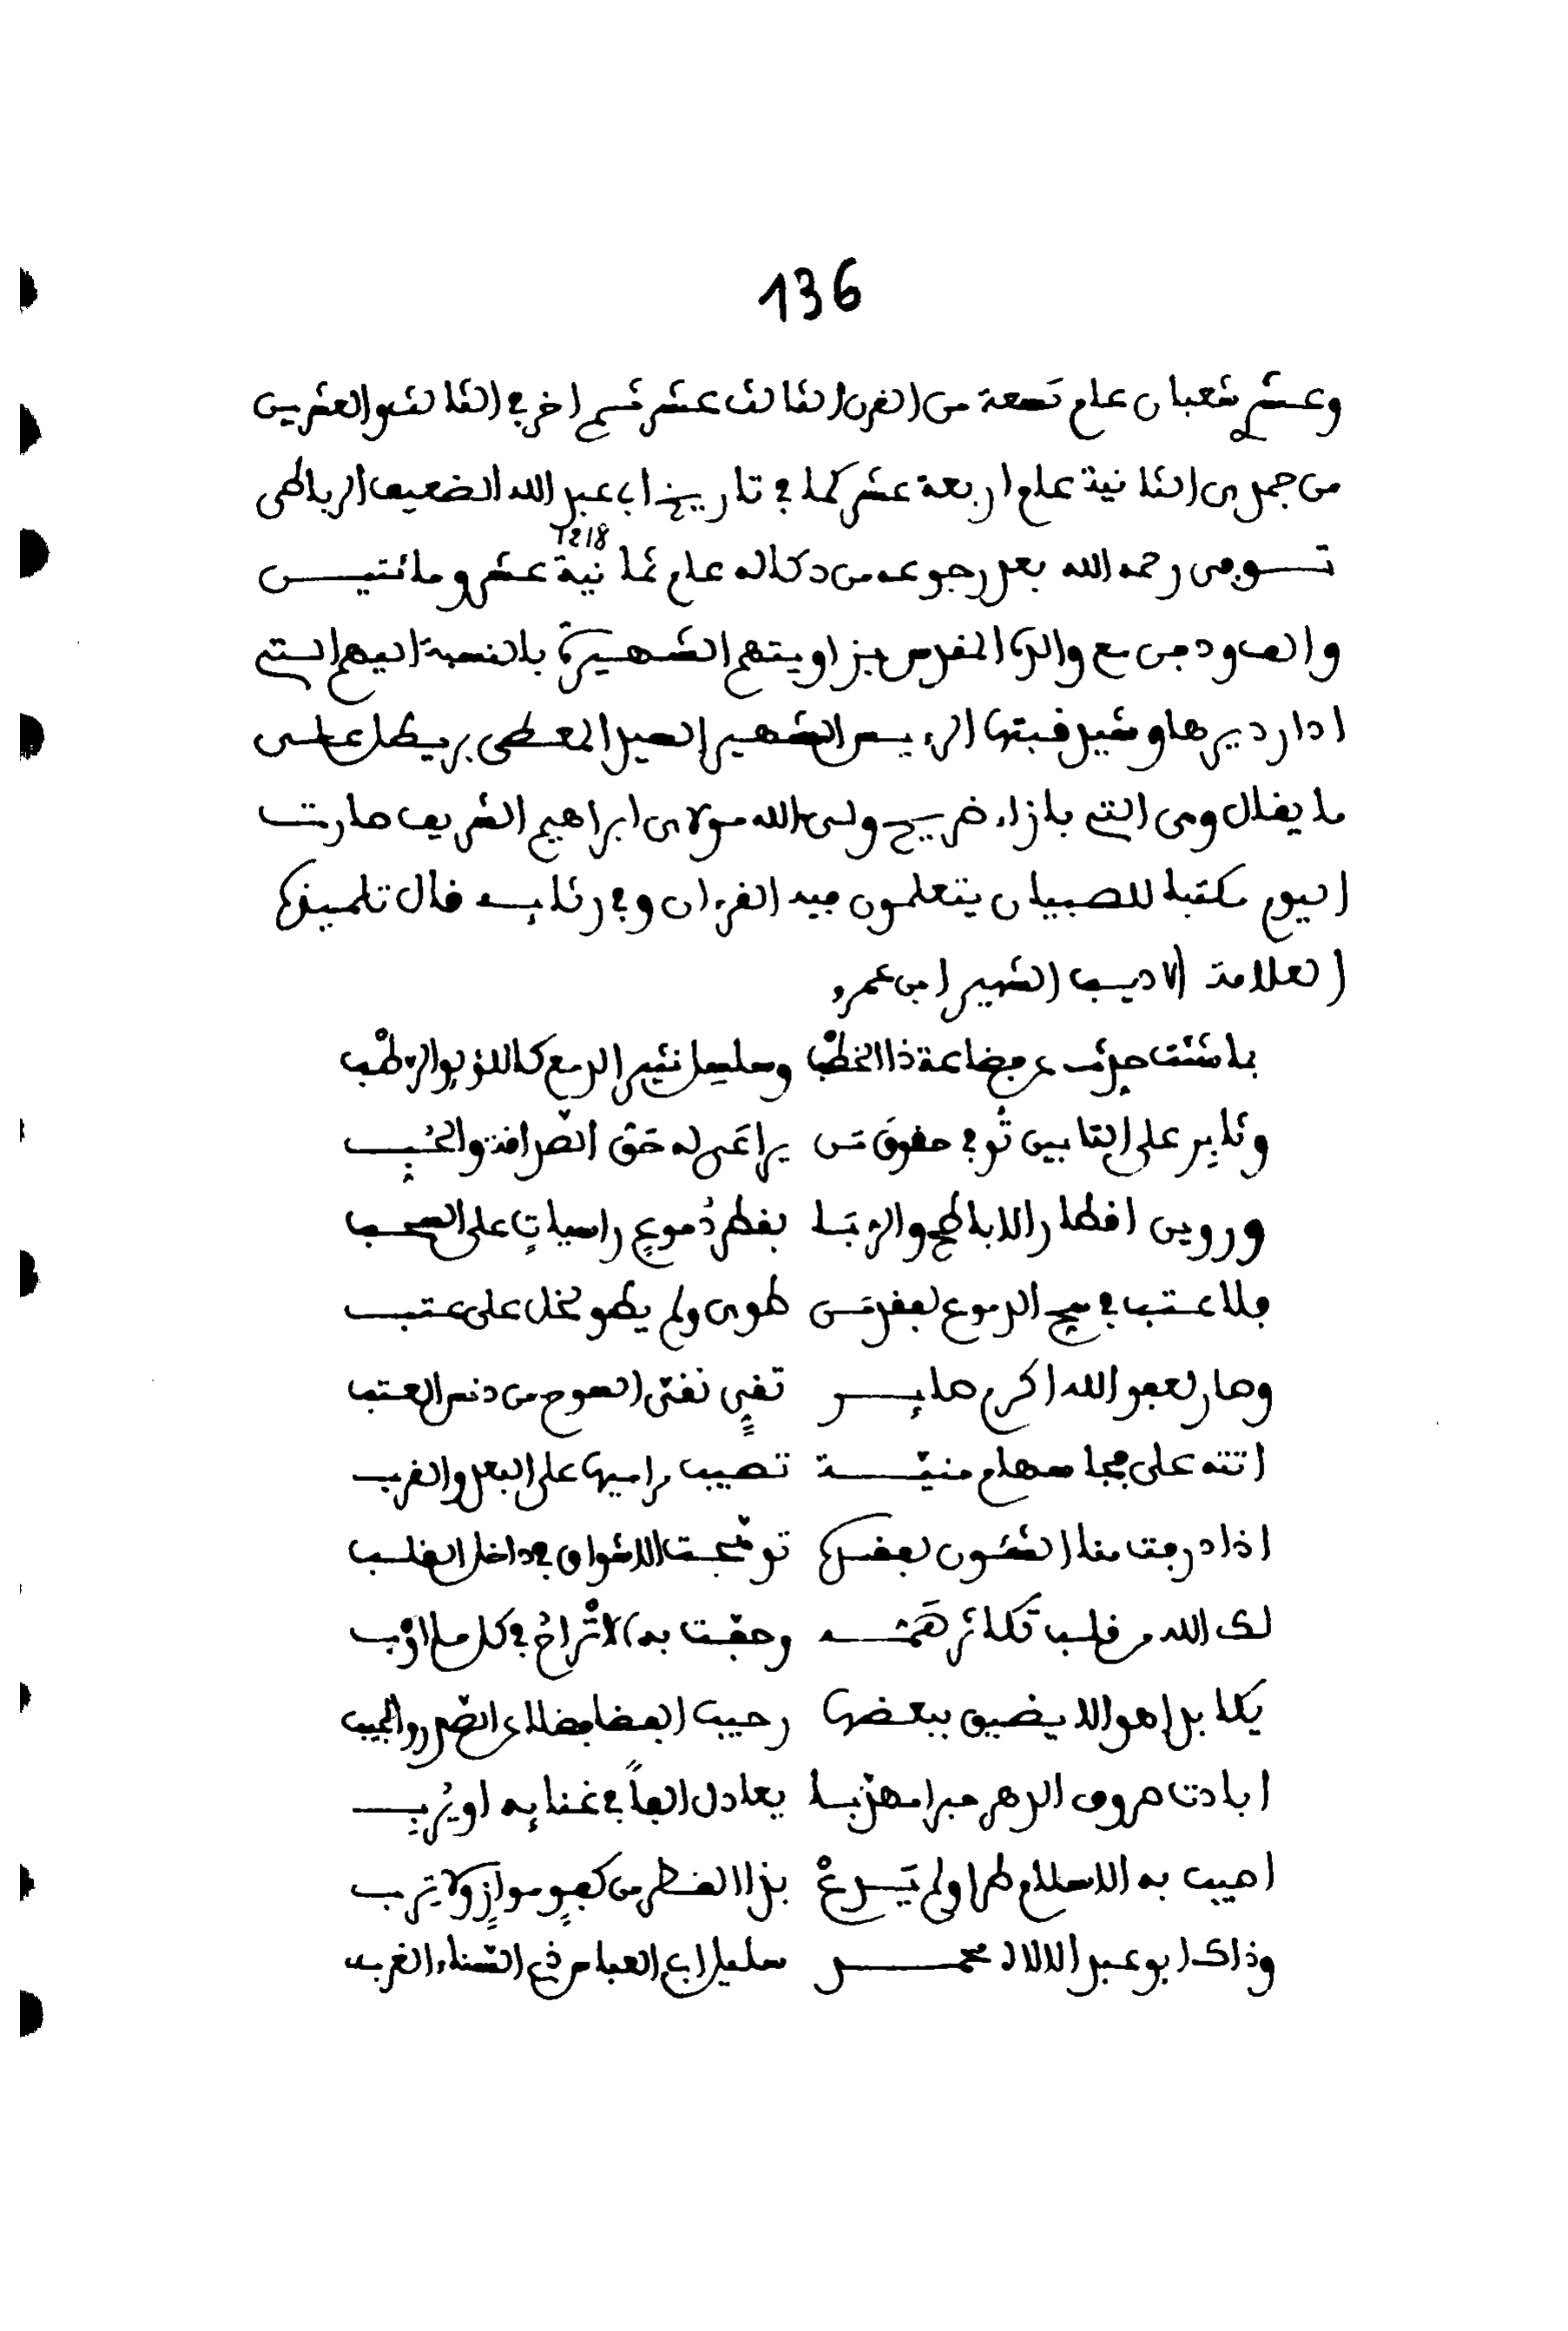 136
وعشري شعبان عام تسعة من القرن الثالث عشر ثم اخر في الثالث والعشرين
من جمدى الثانية عام اربعة عشر كما في تاريخ ابي عبد الله الضعيف الرباطي
توفي رحمه الله بعد رجوعه من دكاله عام ثمانية عشر ومائتين
1218
والده المقدس بزاويتهم الشهيرة بالنسبة اليهم التي
ادار ديرها وشيد قبتها الرءيس الشهير السيد المعطي بريطل على
ما يقال وهي التي بازاء ضريح ولي الله مولاي ابراهيم الشريف صارت
اليوم مكتبا للصبيان يتعلمون فيه القرءان وفي رثايه قال تلميذه
العلامة الاديب الشهير ابن عمرو
وسلسل نثير الدمع كاللؤلؤ الرطب
وثابر على التابين تُوف حقوق من يراعَى له حق الصداقة والحُب
وروين اقطار الاباطح والربا بقطر دُموعٍ راسياتٍ على السحب
فلا عتب في سح الدموع لفقد من طوى ولم يطو نخل على عتب
وصار لعفو الله اكرم صاير تقيٍ نقي السوح من دنس العتب
اتته على فجا سهام منية تصيب مراميها على البعد والقرب
اذا درجت منا الشئون لفقده توهجت الاشواق في داخل القلب
لك الله من قلب تكاثر همه وحفت به الاتْراحُ في كل ما اوْب
يكابد اهوالا يضيق ببعضها رحيب الفضا فضلا عن الصدر والجيب
ابادت صروف الدهر حبرا مهذبا يعادل الفاً في غنايه او يُربِ
اصيب به الاسلام طرا ولم يَدعْ بذا القطر من كفوٍ موازٍ ولا ترب
وذاك ابو عبد الالاه محمد سليل ابي العباس في السناء الغرب